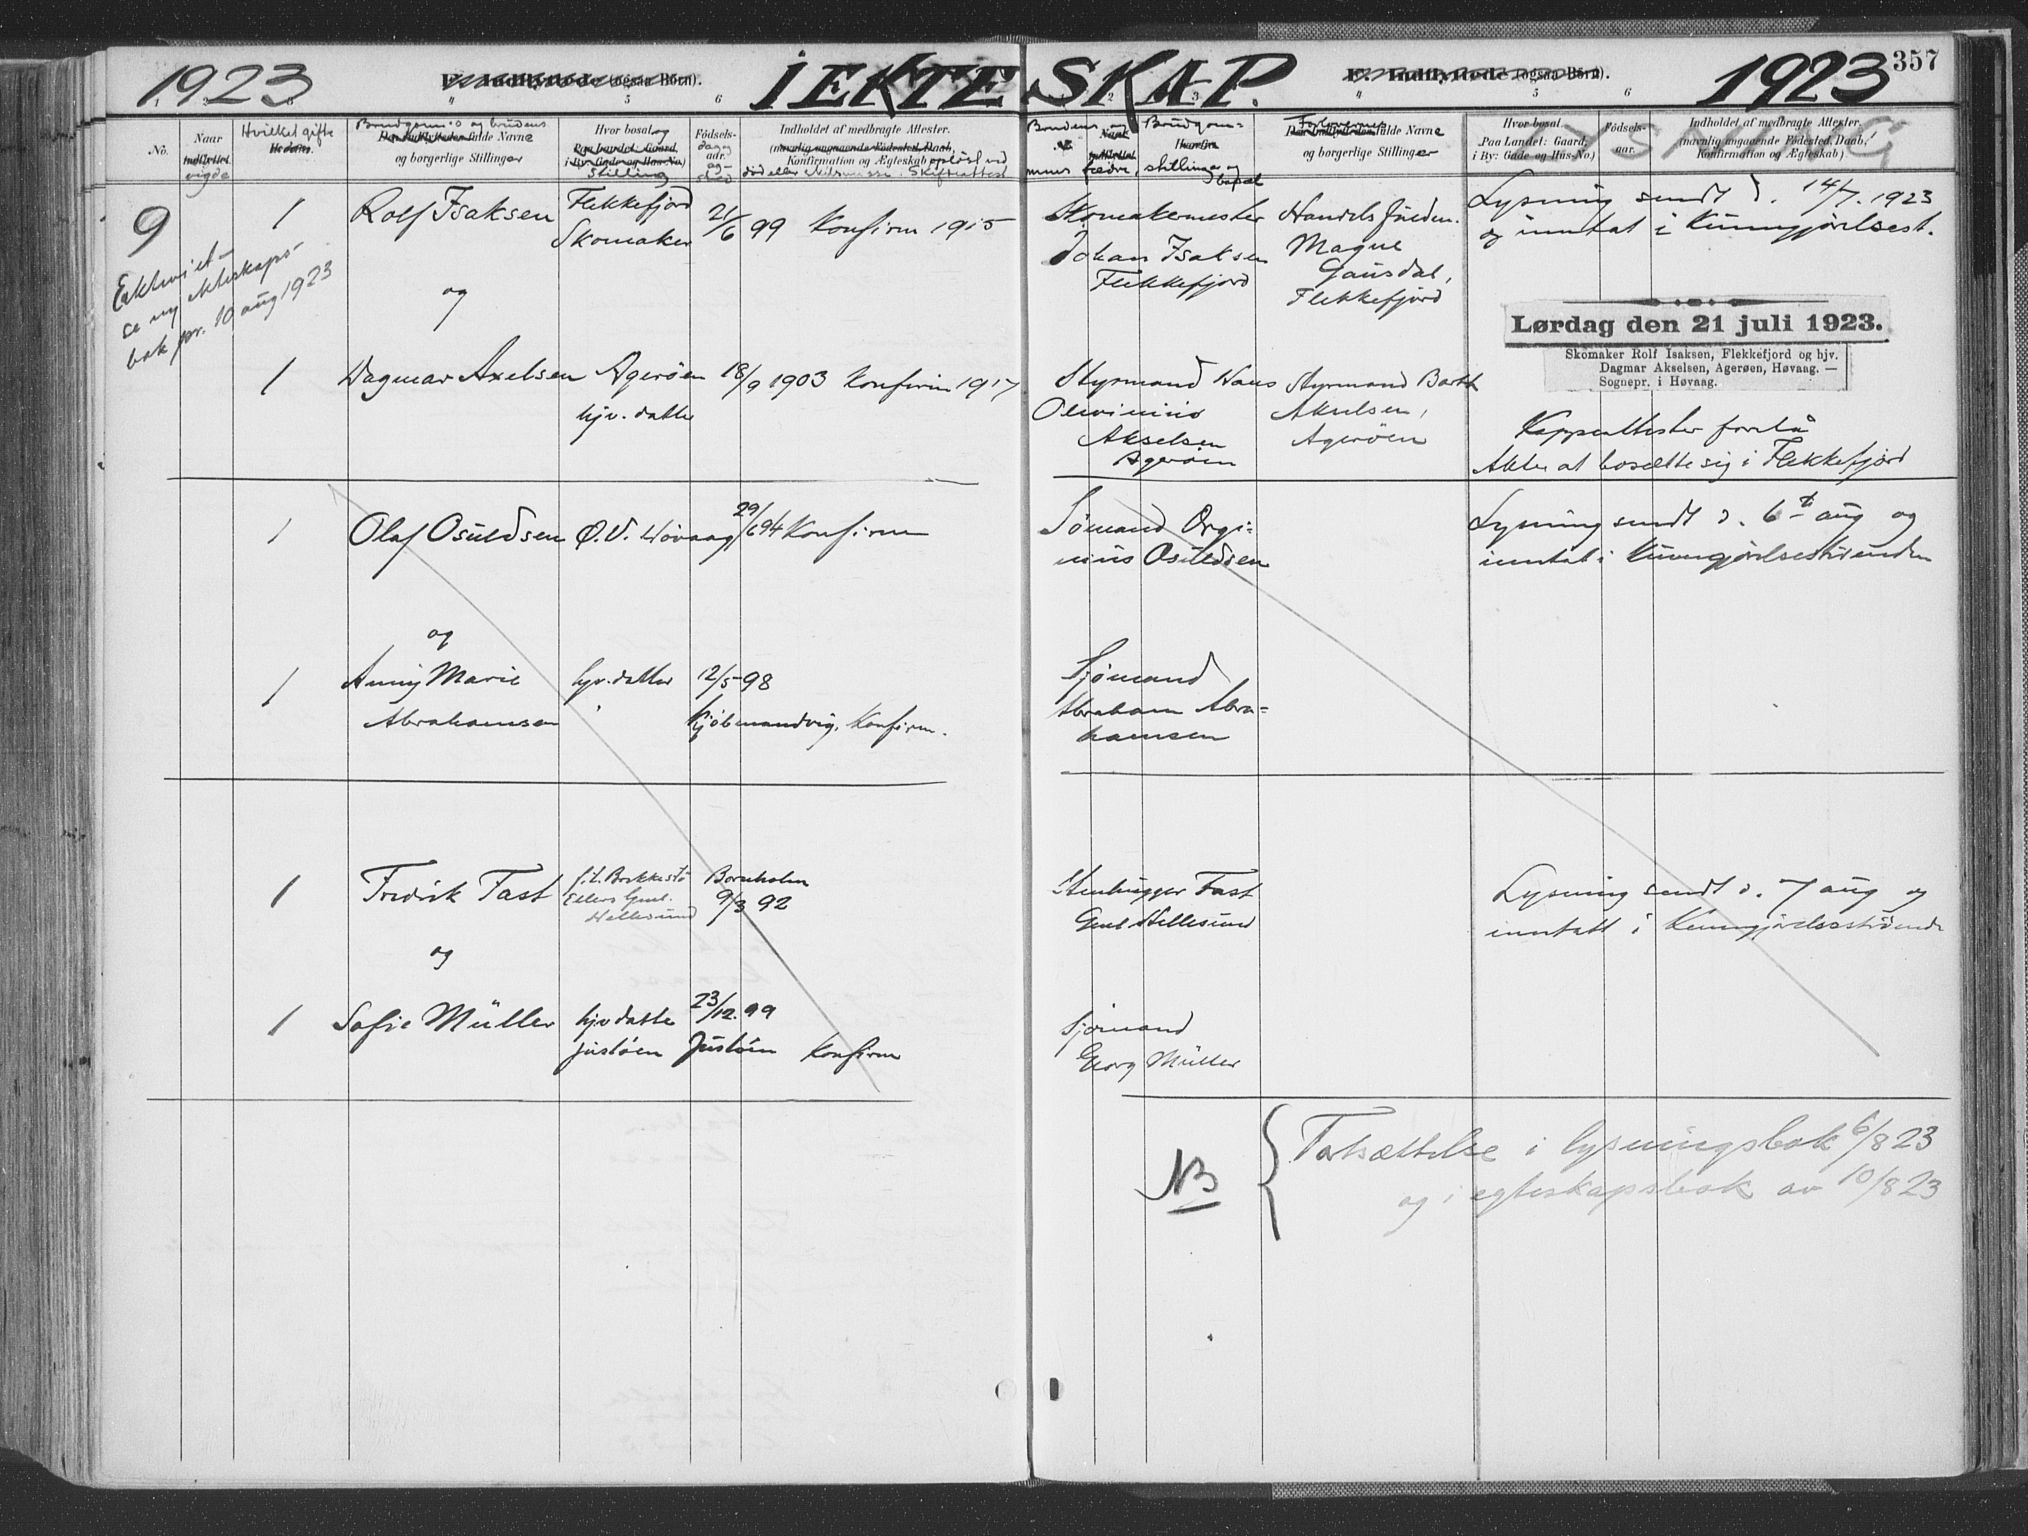 1923
F. Indflyttede (ogsaa Börn).
I EKTESKAP.
F. Indflyttede (ogsaa Börn).
1923
357
5 6 2 3 5 6
No.
Naar indflyttet
vigde
Hvilket gifte
Brudgom:s og brudens
Den Indflyttedes fulde Navne
og borgerlige Stillinger
Hvor bosat og
Paa Landet: Gaard,
i By: Gade og Hus-No.)
Stilling
Födsels-
dag og
aar.
og
sted
Indholdet af medbragte Attester.
(navnlig angaaende Födested, Daab,
Konfirmation og Ægteskab opplöst ved
död eller Skilsmisse. Skifteattest
Brudens og
Brudgom-
mens fedre, stilling og
bopæl
Forlovernes
Den Indflyttedes fulde Navne
og borgerlige Stillinger
Hvor bosat.
Paa Landet: Gaard,
i By: Gade og Hus-No.)
Födsels-
aar.
LYSNING
Indholdet af medbragte Attester.
(navnlig angaaende Födested, Daab,
Konfirmation og Ægteskab)
9
Ekteviet
se ny ekteskaps-
bok pr. 10 aug 1923
1 Rolf Isaksen Flekkefjord
Skomaker 21/6 99 Konfirm 1915
Skomakermester
Johan Isaksen
Flekkefjord
Magne
Gausdal,
Flekkefjord
Lysning sendt d. 14/7. 1923
og inntat i Kunngjörelsest.
og
Lørdag den 21 juli 1923.
Skomaker Rolf Isaksen, Flekkefjord og hjv.
Dagmar Akselsen, Agerøen, Høvaag. —
Sognepr. i Høvaag.
1 Dagmar Axelsen Agerøen
hjv. datter 18/9 1903 Konfirm 1917
Styrmand Hans
Akselsen
Agerøen
Styrmand Barth
Akselsen,
Agerøen
Koppeattester forelå
Akter at bosætte sig i Flekkefjord
1 Olaf Osuldsen Ø.V. Høvaag 29/6 94 Konfirm
Sømand Orgi-
nius Osuldsen
Lysning sendt d. 6te aug og
inntat i Kunngjörelsestidenden
og
1 Anny Marie
Abrahamsen hjv. datter 12/5 98
Kjøbmandvig, Konfirm.
Sjømand
Abraham Abra-
hamsen
1 Fredrik Fast f.t. Brekkestø
Ellers Gml.
Hellesund
Bornholm
9/3 92
Stenhugger Fast
Gml Hellesund
Lysning sendt d. 7 aug og
inntatt i Kunngjörelsestidende
og
1 Sofie Müller hjv datter
Justøen 23/12. 99
Justøen Konfirm
Sjømand
Georg Müller
NB
Fortsættelse i lysningsbok 6/8 23
og i egteskapsbok av 10/8 23